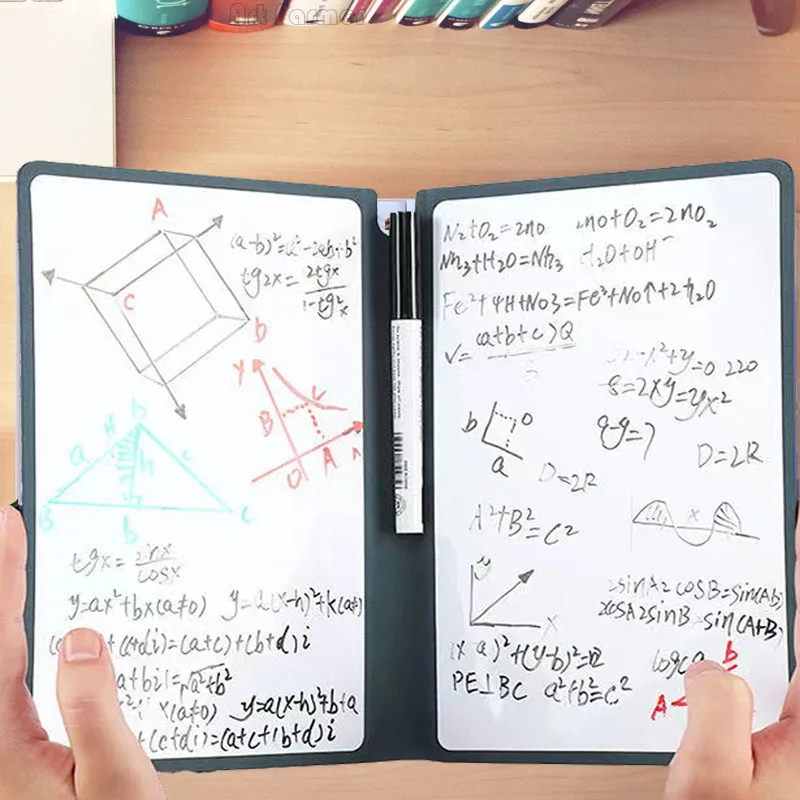 Art Farmer
A
(a-b)²=a²-2ab+b²
tg2x= 2tgx
1-tg²x
C
D
Y
B
C
O
A
D
H
a
h
c
B
b
C
tgx= sinx
cosx
y=ax²+bx(a≠0) y=a(x-h)²+k(a≠)
+(c+di)=(a+c)+(b+d)i
a+bi|=√a²+b²
x(a≠0) y=a(x-h)²+b+a
+(c+di)=(a+c+(b+d)i
N₂+O₂=2no 2no+O₂=2nO₂
Nh₃+H₂O=Nh₃ H₂O+OH⁻
Fe²+4H+No3=Fe³+No↑+2h₂O
√= (a+b+c)Q
3
x²+y=0 220
8=2xy=yx²
b
O
a
D=2R
q-y=7
D=2R
A²+B²=C²
x
y
X
2sinA2cosB=sin(Ab)
2cosA2sinB=sin(A+B)
(x a)²+(y-b)²=
logca
b
PE⊥BC a²+b²=c²
A<